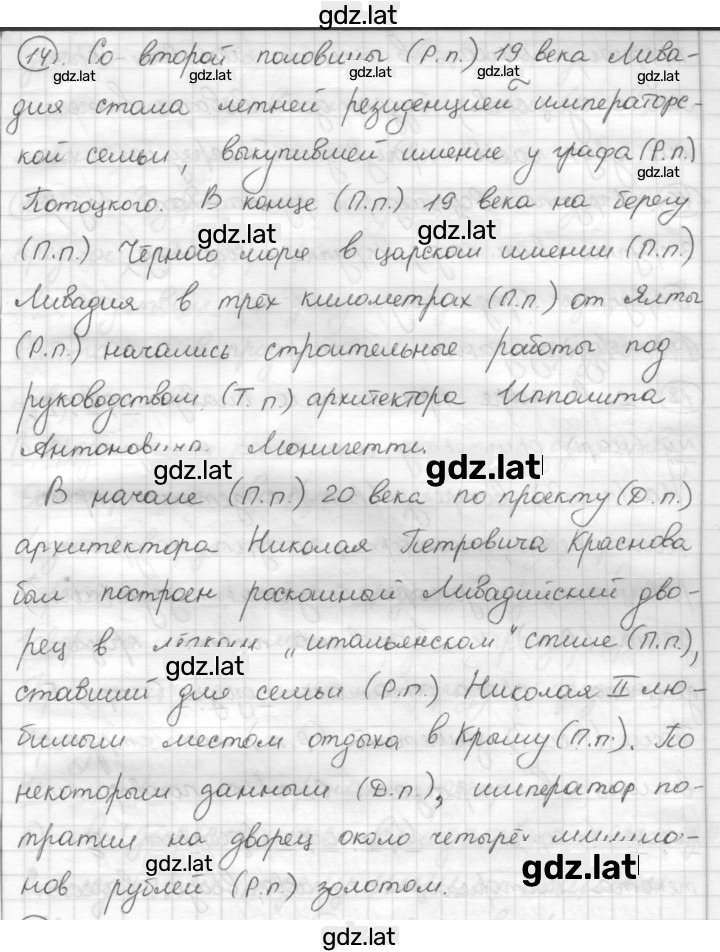 gdz.lat
14). Со второй половины (Р.п.) 19 века Лива-
gdz.lat gdz.lat gdz.lat gdz.lat
дия стала летней резиденцией императорс-
кой семьи, выкупившей имение у графа (Р.п.)
gdz.lat
Потоцкого. В конце (П.п.) 19 века на берегу
gdz.lat gdz.lat
(П.п.) Чёрного моря в царском имении (П.п.)
Ливадия в трёх километрах (П.п.) от Ялты
(Р.п.) начались строительные работы под
руководством (Т.п.) архитектора Ипполита
Антоновича Монигетти.
gdz.lat gdz.lat
В начале (П.п.) 20 века по проекту (Д.п.)
архитектора Николая Петровича Краснова
был построен роскошный Ливадийский дво-
рец в лёгком „итальянском" стиле (П.п.),
gdz.lat
ставший для семьи (Р.п.) Николая II лю-
бимым местом отдыха в Крыму (П.п.). По
некоторым данным (Д.п.), император по-
тратил на дворец около четырёх миллио-
gdz.lat gdz.lat
нов рублей (Р.п.) золотом.
gdz.lat